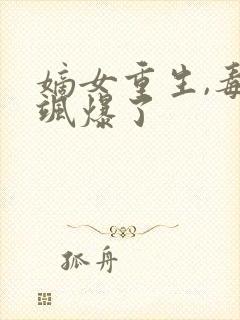 嫡女重生,毒
飒爆了
孤舟